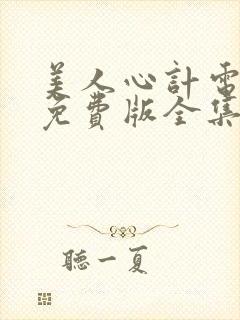 美人心計電
免費版全集
聽一夏